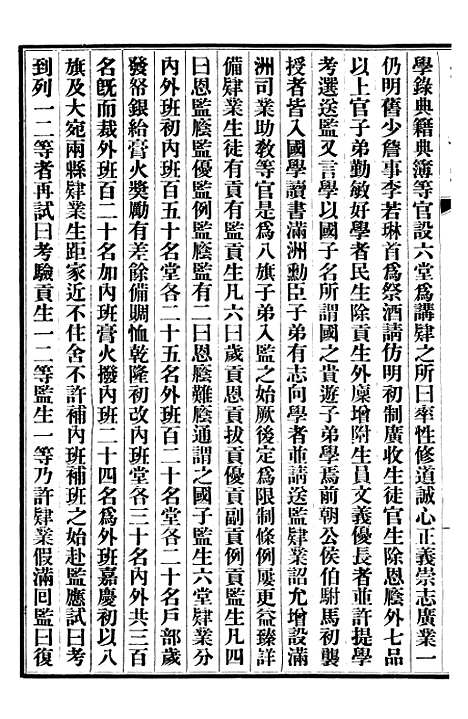 學錄典籍典簿等官設六堂爲講肄之所曰率性修道誠心正義崇志廣業一
仍明舊少詹事李若琳首爲祭酒請仿明初制廣收生徒官生除恩廕外七品
以上官子弟勤敏好學者民生除貢生外廩增附生員文義優長者並許提學
考選送監又言學以國子名所謂國之貴遊子弟學焉前朝公侯伯駙馬初襲
授者皆入國學讀書滿洲勳臣子弟有志向學者並請送監肄業詔允增設滿
洲司業助教等官是爲八旗子弟入監之始厥後定爲限制條例屢更益臻詳
備肄業生徒有貢有監貢生凡六曰歲貢恩貢拔貢優貢副貢例貢監生凡四
曰恩監廕監優監例監廕監有二曰恩廕難廕通謂之國子監生六堂肄業分
內外班初內班百五十名堂各二十五名外班百二十名堂各二十名戶部歲
發帑銀給膏火獎勵有差餘備賙恤乾隆初改內班堂各三十名內外共三百
名旣而裁外班百二十名加內班膏火撥內班二十四名爲外班嘉慶初以八
旗及大宛兩縣肄業生距家近不住舍不許補內班補班之始赴監應試曰考
到列一二等者再試曰考驗貢生一二等監生一等乃許肄業假滿回監曰復